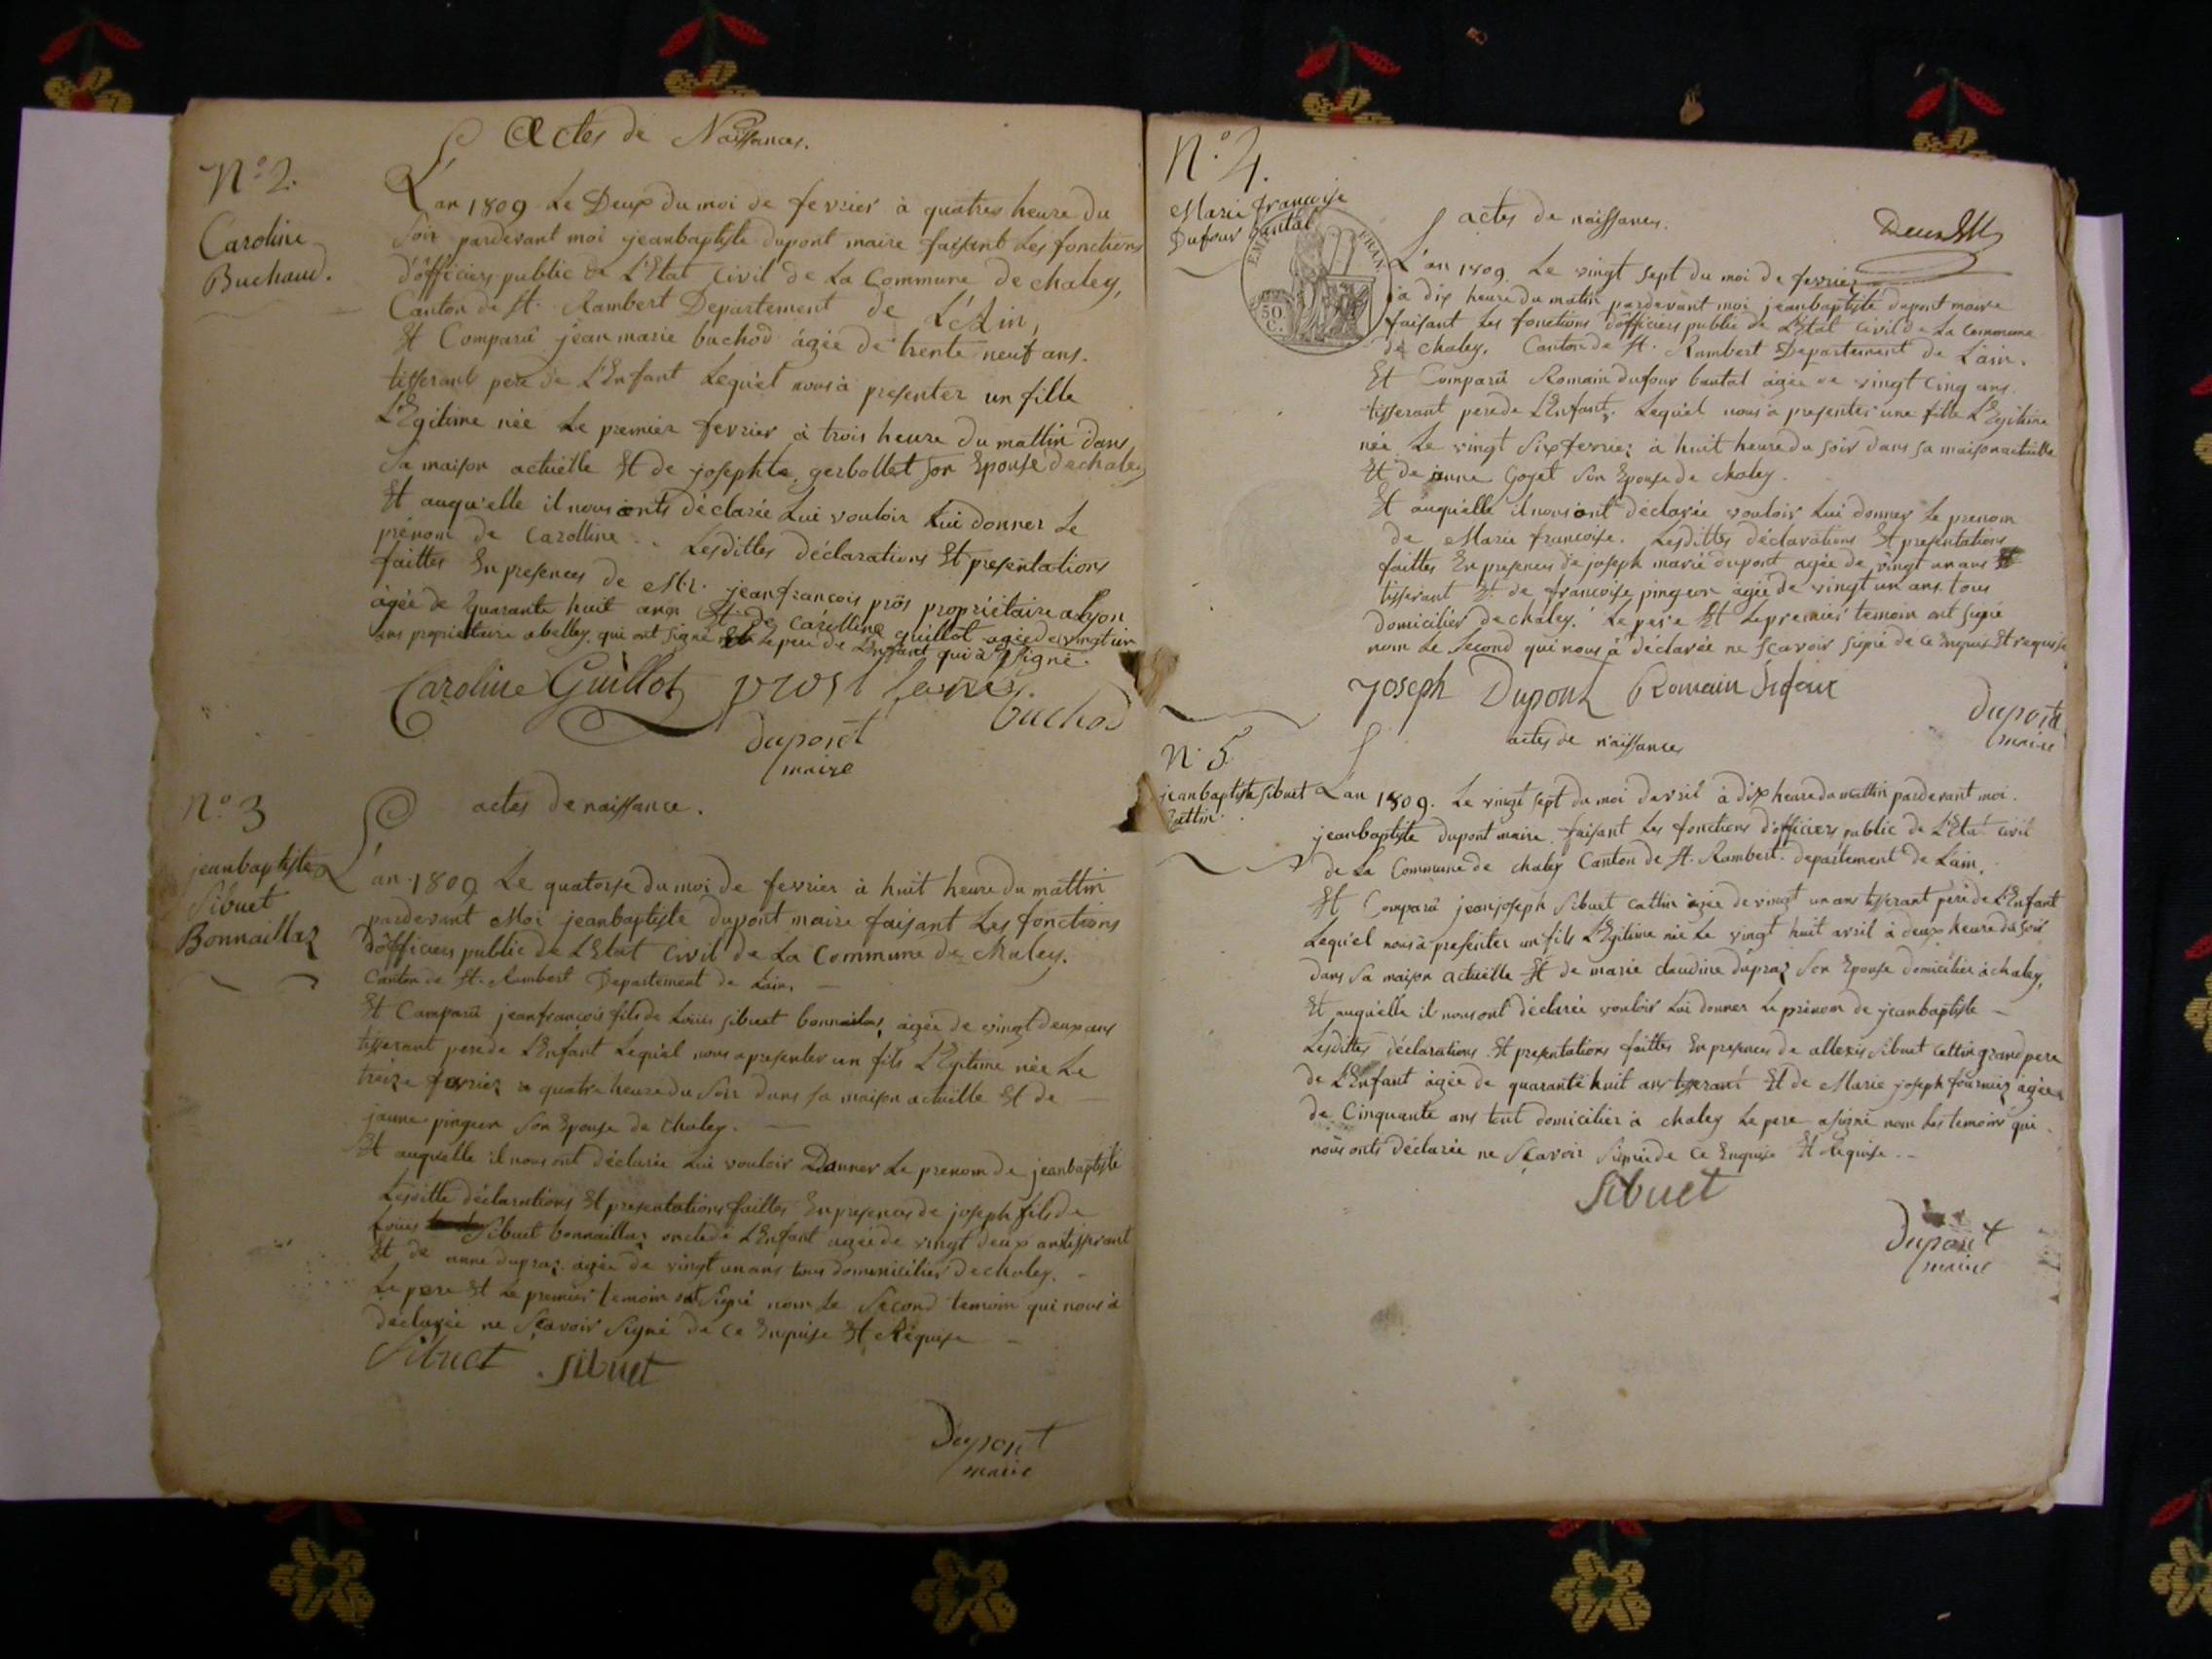 Actes de Naissances.
N.o 2.
Caroline
Buchaud.
L'an 1809 Le Deux du moi de fevrier à quatres heure du
soir pardevant moi jeanbaptiste dupont maire faisant Les fonctions
d'officiers public de L'Etat Civil de La Commune de chaley,
Canton de St. Rambert Departement de L'Ain,
Et Comparû jean marie buchod âgée de trente neuf ans.
tisserant pere de L'Enfant Lequ'el nous à presenter un fille
L'Egitime née Le premier fevrier à trois heure du mattin dans
Sa maison actuëlle Et de josephte gerbollet son Epouse de chaley
Et auqu'elle il nous onts déclarée Lui vouloir Lui donner Le
prénom de Carolline. Lesdittes déclarations Et presentations
faittes En presences de Mr. jeanfrancois prôs propriétaire a Lyon
âgée de quarante huit ans Et de Carolline guillot agée de vingt un
ans propriétaire a belley. qui ont signé Le pere de L'enfant qui à signé.
Caroline Guillot prost
buchod
dupont
maire
N.o 3
jeanbaptiste
Sibuet
Bonnaillaz
actes de naissance.
L'an 1809 Le quatorse du moi de fevrier à huit heure du mattin
pardevant Moi jeanbaptiste dupont maire faisant Les fonctions
D'officiers public de L'Etat Civil de La Commune de Chaley.
Canton de St. Rambert Departement de Lain.
Et Comparû jeanfrançois fils de Louis sibuet bonnailaz âgée de vingt deux ans
tisserant pere de L'Enfant Lequ'el nous a presenter un fils L'Egitime née Le
treize fevrier a quatre heure du Soir dans sa maison actuëlle Et de
jaune pingeon Son Epouse de Chaley.
Et auquelle il nous ont déclarée Lui vouloir Donner Le prenom de jeanbaptiste
Lesditte déclarations Et presentations faittes En presences de joseph fils de
Louis Sibuet bonnaillaz oncle de L'Enfant agée de vingt deux ans tisserant
Et de anne dupraz âgée de vingt un ans tous domicilier de chaley.
Le pere Et Le premier temoin ont Signé nom Le Second temoin qui nous à
déclarée ne Sçavoir Signé de Ce Enquise Et Réquise
Sibuet Sibuet
Dupont
maire
N.o 4.
Marie francoise
Dufour bantal
EMP. FRAN.
50
C.
actes de naissances.
L'an 1809. Le vingt Sept du moi de fevrier
à dix heure du matin pardevant moi jeanbaptiste dupont maire
faisant Les fonctions d'officiers public de L'Etat Civil de La Commune
de chaley. Canton de St. Rambert Departement de L'ain.
Et Comparû Romain dufour bantal agée de vingt Cinq ans
tisserant pere de L'Enfant. Lequ'el nous à presenter une fille L'Egitime
née Le vingt Six fevrier à huit heure du soir dans sa maison actuëlle
Et de jeanne Gojet Son Epouse de chaley.
Et auquelle il nous ont déclarée vouloir Lui donner Le prenom
de Marie francoise. Lesdittes déclarations Et presentations
faittes En presences de joseph marie dupont agée de vingt un ans
tisserant Et de francoise pingeon agée de vingt un ans. tous
domicilier de chaley. Le pere Et Le premier temoin ont signé
nom Le Second qui nous à déclarée ne Sçavoir signé de Ce Enquise Et requise
Joseph Dupont Romain Dufour
dupont
maire
N. 5.
jeanbaptiste Sibuet
Cattin.
actes de naissances
L'an 1809. Le vingt sept du moi davril à dix heure du mattin pardevant moi.
jeanbaptiste dupont maire faisant Les fonctions d'officiers public de L'Etat Civil
de La Commune de chaley Canton de St. Rambert. departement de Lain.
Et Comparû jeanjoseph Sibuet Cattin agée de vingt un ans tisserant pere de L'Enfant
Lequ'el nous à presenter un fils L'Egitime née Le vingt huit avril à deux heure du soir
dans Sa maison actuëlle Et de marie claudine dupraz Son Epouse domicilier à chaley,
Et auquelle il nous ont déclarée vouloir Lui donner Le prénom de jeanbaptiste
Lesdittes déclarations Et presentations faittes En presences de allexis Sibuet Cattin grand pere
de L'Enfant âgée de quarante huit ans tisserant Et de Marie joseph fournier âgée
de Cinquante ans tout domicilier à chaley Le pere a signé nom Les temoins qui
nous onts déclarée ne Sçavoir Signé de Ce Enquise Et Réquise
Sibuet
Dupont
maire